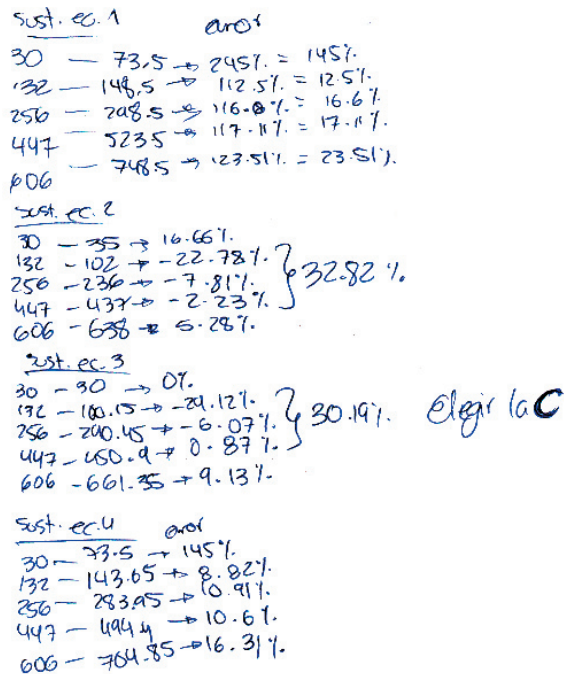 Sust. ec. 1 error
30 — 73.5 → 245% = 145%.
132 — 148.5 → 112.5% = 12.5%.
256 — 298.5 → 116.6% = 16.6%
447 523.5 → 117.11% = 17.11%.
606 — 748.5 → 123.51% = 23.51%.
Sust. ec. 2
30 — 35 → 16.66%.
132 - 102 → -22.78%.
256 - 236 → -7.81% } 32.82 %.
447 - 437 → -2.23%.
606 - 638 → 5.28%.
sust. ec. 3
30 - 30 → 0%.
132 - 100.15 → -24.12%.
256 - 240.45 → -6.07% } 30.19%. Elegir la C
447 - 450.9 → 0.87%.
606 - 661.35 → 9.13%.
Sust. ec. 4 error
30 — 73.5 → 145%.
132 — 143.65 → 8.82%.
256 — 283.95 → 10.91%.
447 — 494.4 → 10.6%.
606 — 704.85 → 16.31%.